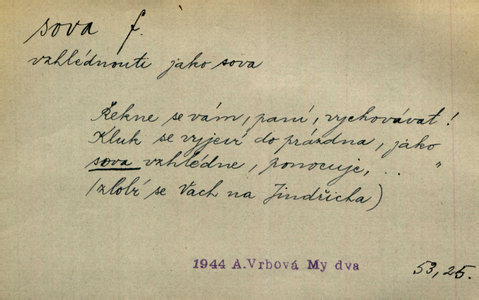 sova f.
vzhlédnouti jako sova
Řekne se vám, paní, vychovávat!
Kluk se vyjeví do prázdna, jako
sova vzhlédne, ponocuje, ... "
(zlobí se Vach na Jindřicha)
1944 A.Vrbová My dva 53,25.